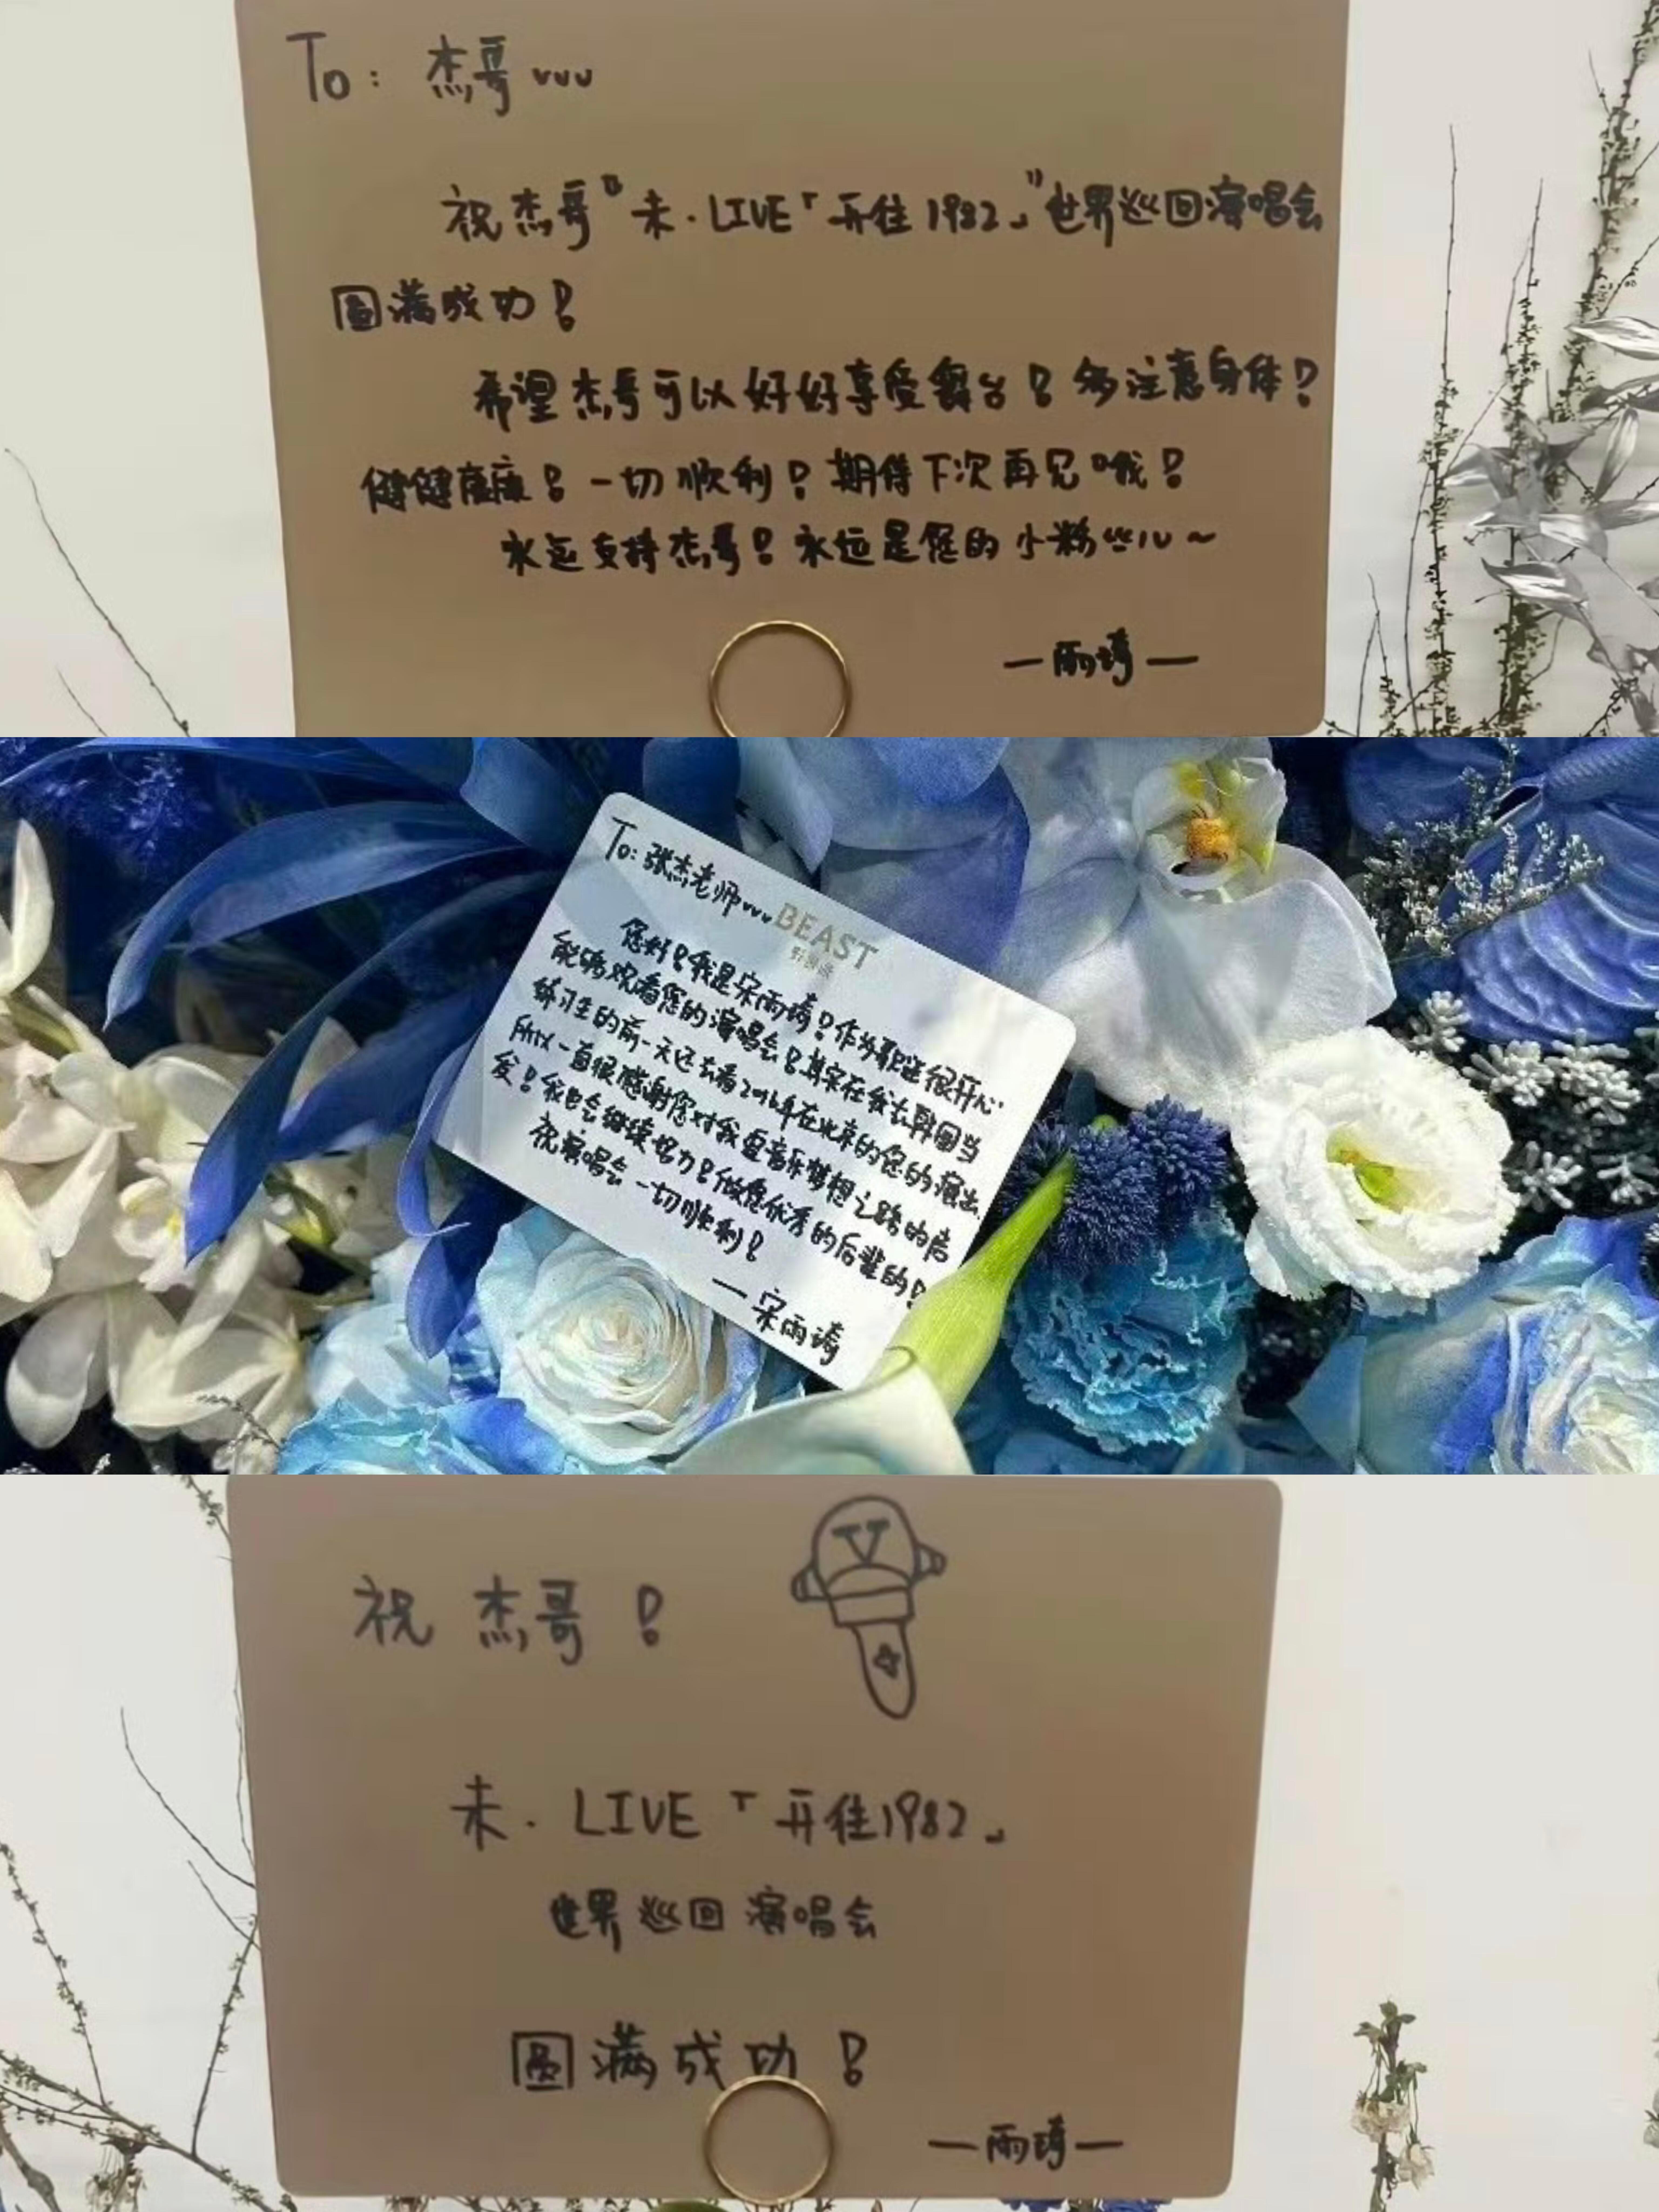 To：杰哥vvv
祝杰哥“未·LIVE「开往1982」”世界巡回演唱会
圆满成功！
希望杰哥可以好好享受舞台！多注意身体！
健健康康！一切顺利！期待下次再见哦！
永远支持杰哥！永远是您的小粉丝儿～
—雨琦—
To：张杰老师vvv
BEAST
野兽派
您好！我是宋雨琦！作为歌迷很开心
能够观看您的演唱会！其实在我去韩国当
练习生的前一天还去看2016年在北京的您的演出，
所以一直很感谢您对我音乐梦想之路的启
发！我也会继续努力！做您优秀的后辈的！
祝演唱会一切顺利！
—宋雨琦
祝杰哥！
V
未·LIVE「开往1982」
世界巡回演唱会
圆满成功！
—雨琦—